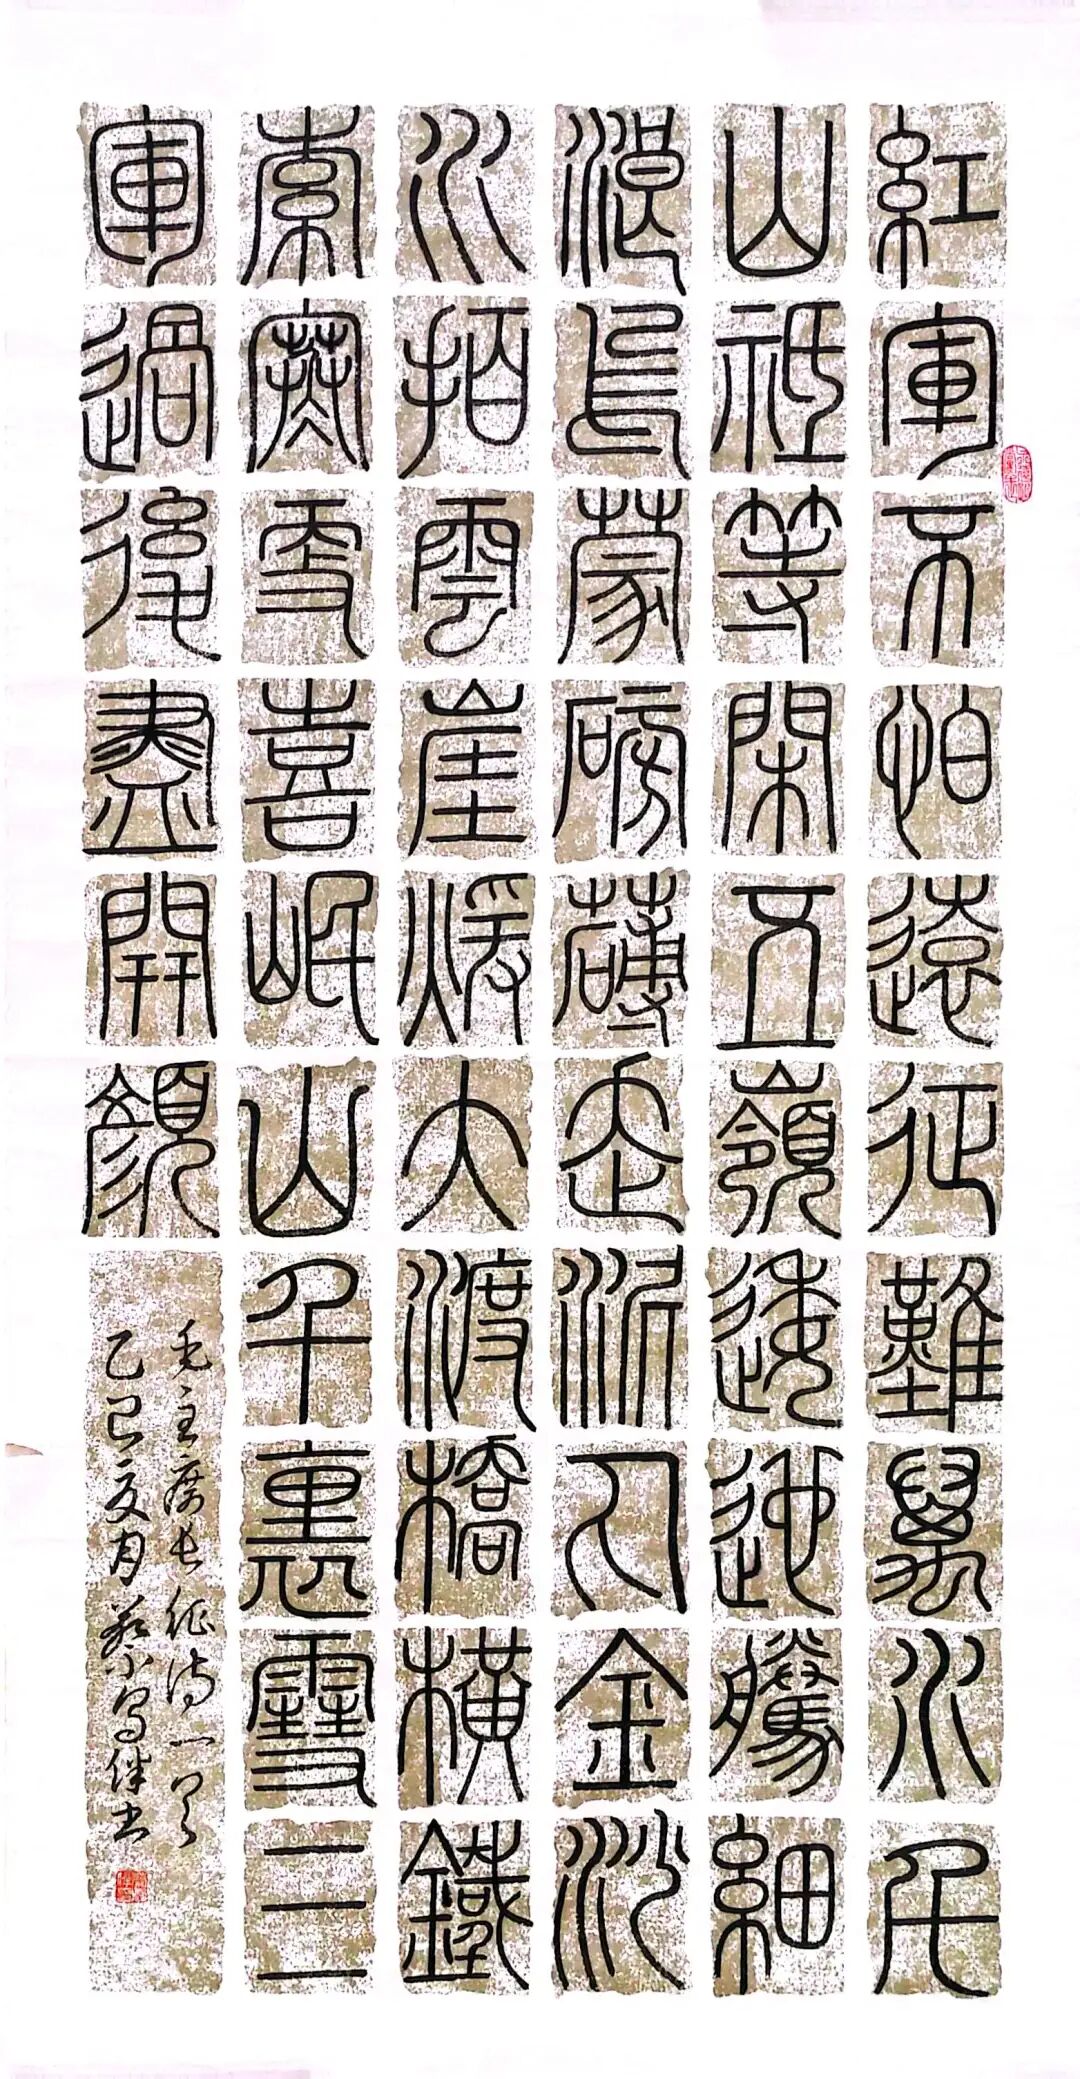 紅軍不怕遠征難萬水千
山祇等閑五嶺逶迤騰細
浪烏蒙磅礴走泥丸金沙
水拍雲崖煖大渡橋橫鐵
索寒更喜岷山千裏雪三
軍過後盡開顏
毛主席長征詩一首
乙巳夏月 書